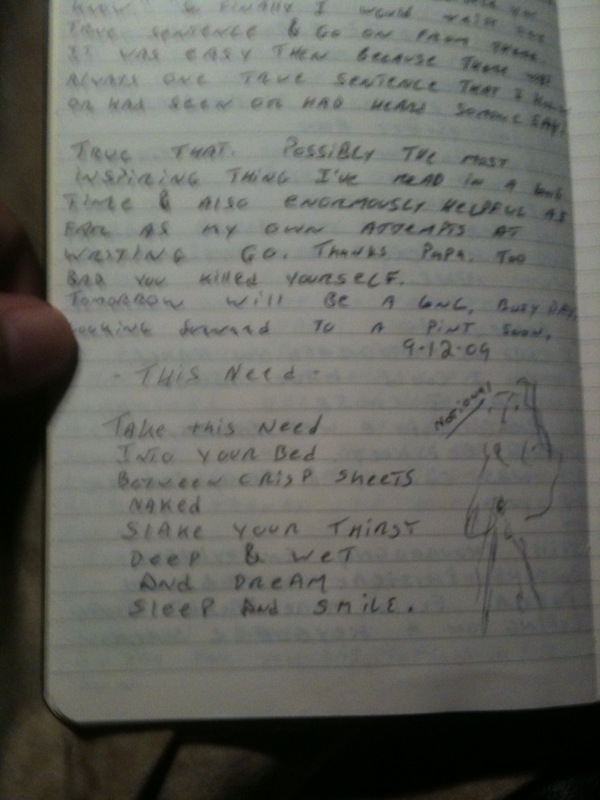 KNEW. & FINALLY I WOULD WRITE ONE
TRUE SENTENCE & GO ON FROM THERE.
IT WAS EASY THEN BECAUSE THERE WAS
ALWAYS ONE TRUE SENTENCE THAT I KNEW
OR HAD SEEN OR HAD HEARD SOMEONE SAY.
TRUE THAT. POSSIBLY THE MOST
INSPIRING THING I'VE READ IN A LONG
TIME & ALSO ENORMOUSLY HELPFUL AS
FAR AS MY OWN ATTEMPTS AT
WRITING GO. THANKS PAPA. TOO
BAD YOU KILLED YOURSELF.
TOMORROW WILL BE A LONG, BUSY DAY.
LOOKING FORWARD TO A PINT SOON.
9-12-09
- THIS NEED -
NOTIONAL
TAKE THIS NEED
INTO YOUR BED
BETWEEN CRISP SHEETS
NAKED
SLAKE YOUR THIRST
DEEP & WET
AND DREAM
SLEEP AND SMILE.